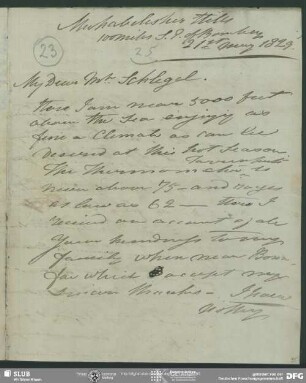 Mahabaleshwar Hills
100 miles S. E. of Bombay
21st May 1829
23
25
My Dear Mr. Schlegel.
Here I am near 5000 feet
above the Sea enjoying as
fine a Climate as can be
desired at this hot Season
The Thermometer
never above 75 - and
as low as 62 - Here I
received an account of all
your kindness to my
family when near Bonn
for which accept my
sincere thanks - I have
nothing
SLUB
Wir führen Wissen.
DFG